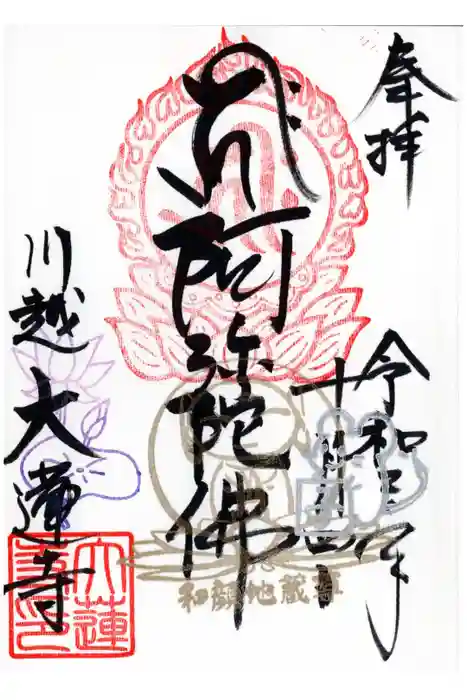 奉拝
令和三年
南無阿弥陀佛
川越 大蓮寺
和顔地蔵尊
大蓮